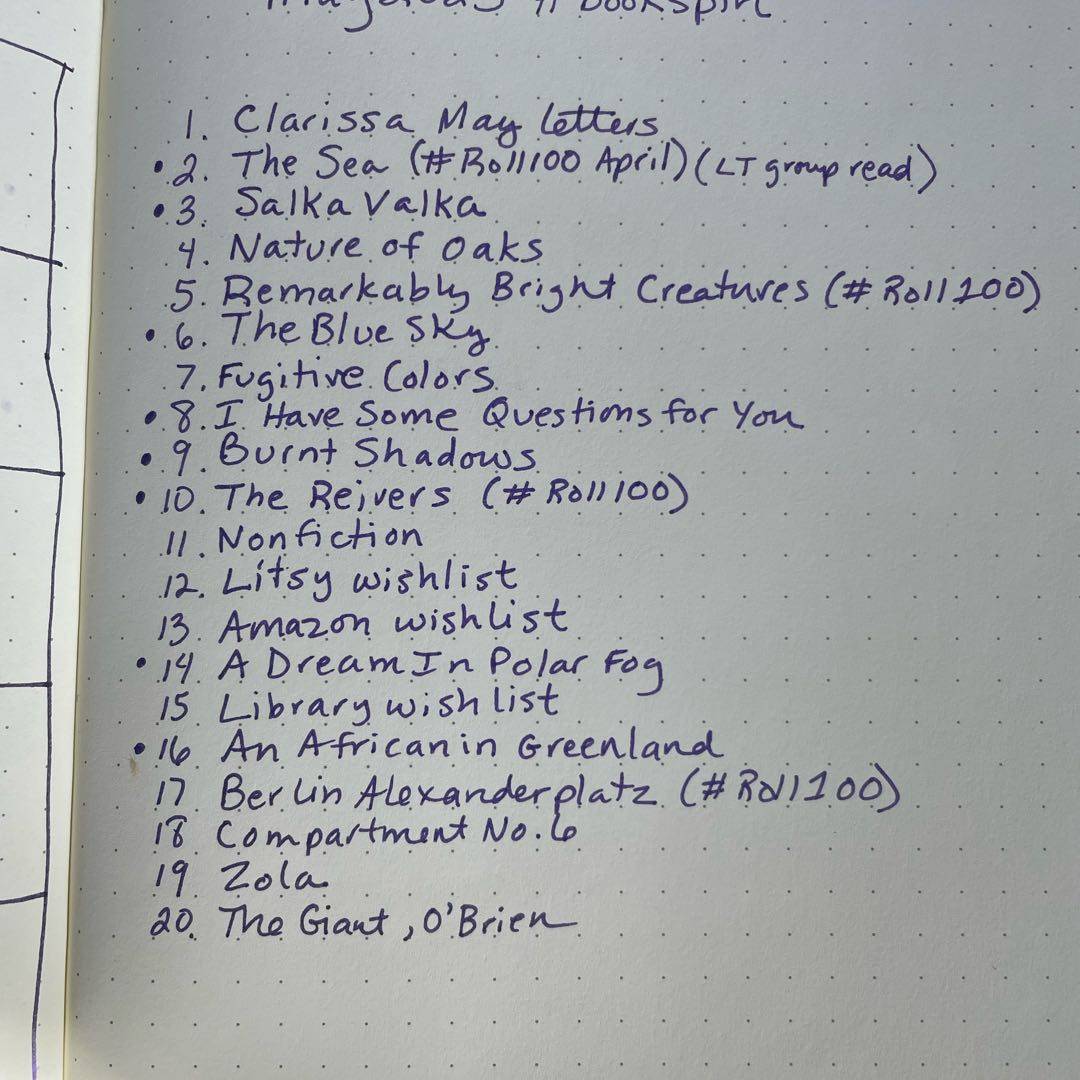 #bookspin
1. Clarissa May letters
• 2. The Sea (#Roll100 April) (LT group read)
• 3. Salka Valka
4. Nature of Oaks
5. Remarkably Bright Creatures (#Roll100)
• 6. The Blue Sky
7. Fugitive Colors
• 8. I Have Some Questions for You
• 9. Burnt Shadows
• 10. The Reivers (#Roll100)
11. Nonfiction
12. Litsy wishlist
13. Amazon wishlist
• 14. A Dream In Polar Fog
15. Library wish list
• 16. An African in Greenland
17 Berlin Alexanderplatz (#Roll100)
18 Compartment No. 6
19. Zola
20. The Giant, O'Brien